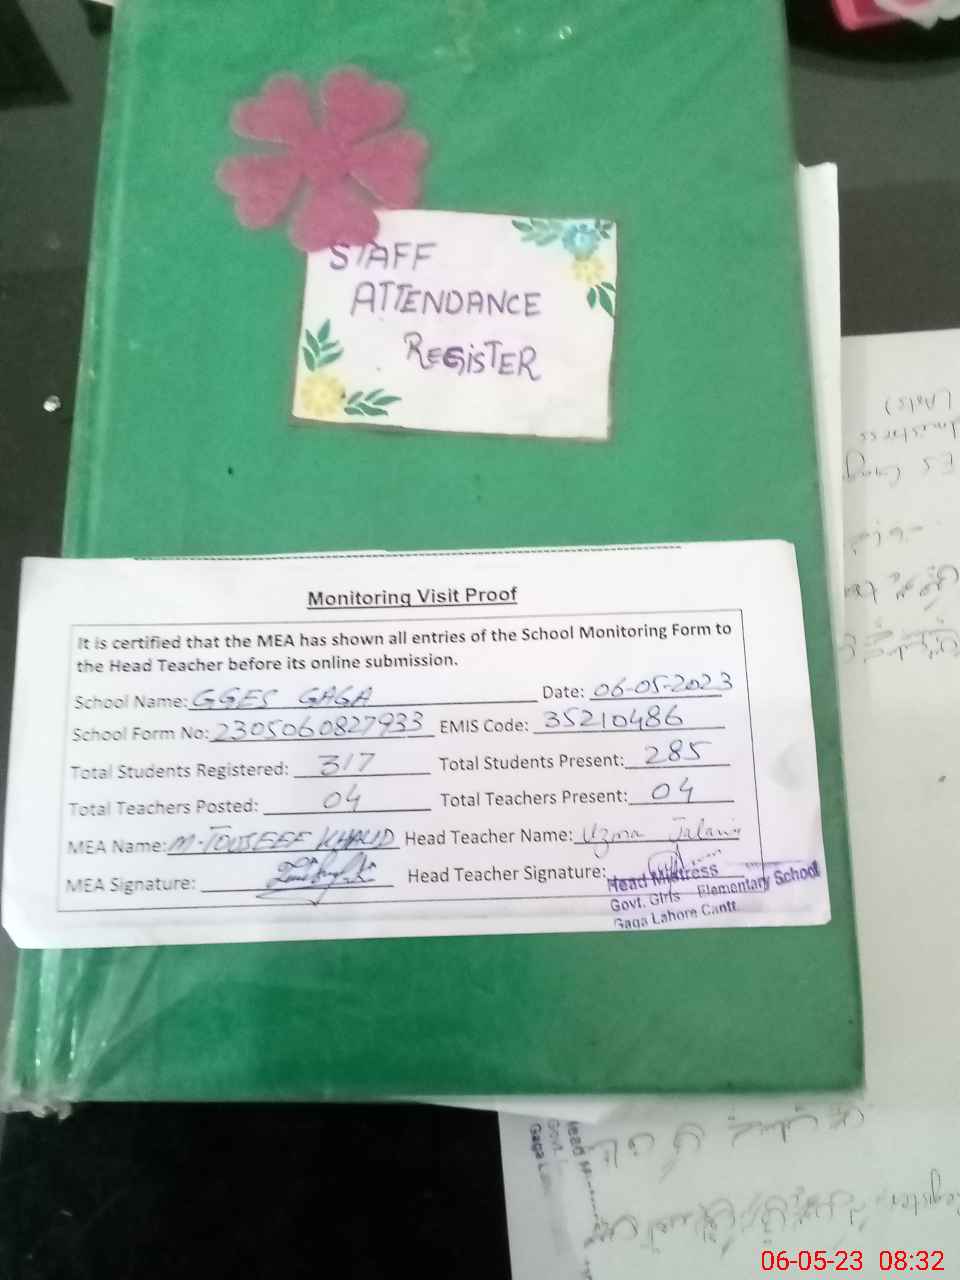 STAFF
ATTENDANCE
REGISTER
Monitoring Visit Proof
It is certified that the MEA has shown all entries of the School Monitoring Form to
the Head Teacher before its online submission.
School Name: GGES GAGA Date: 06-05-2023
School Form No: 2305060827933 EMIS Code: 35210486
Total Students Registered: 317 Total Students Present: 285
Total Teachers Posted: 04 Total Teachers Present: 04
MEA Name: M-TOUSEEF KHALID Head Teacher Name: Uzma Jalani
MEA Signature: Head Teacher Signature:
Head Mistress
Govt. Girls Elementary School
Gaga Lahore Cantt.
06-05-23 08:32